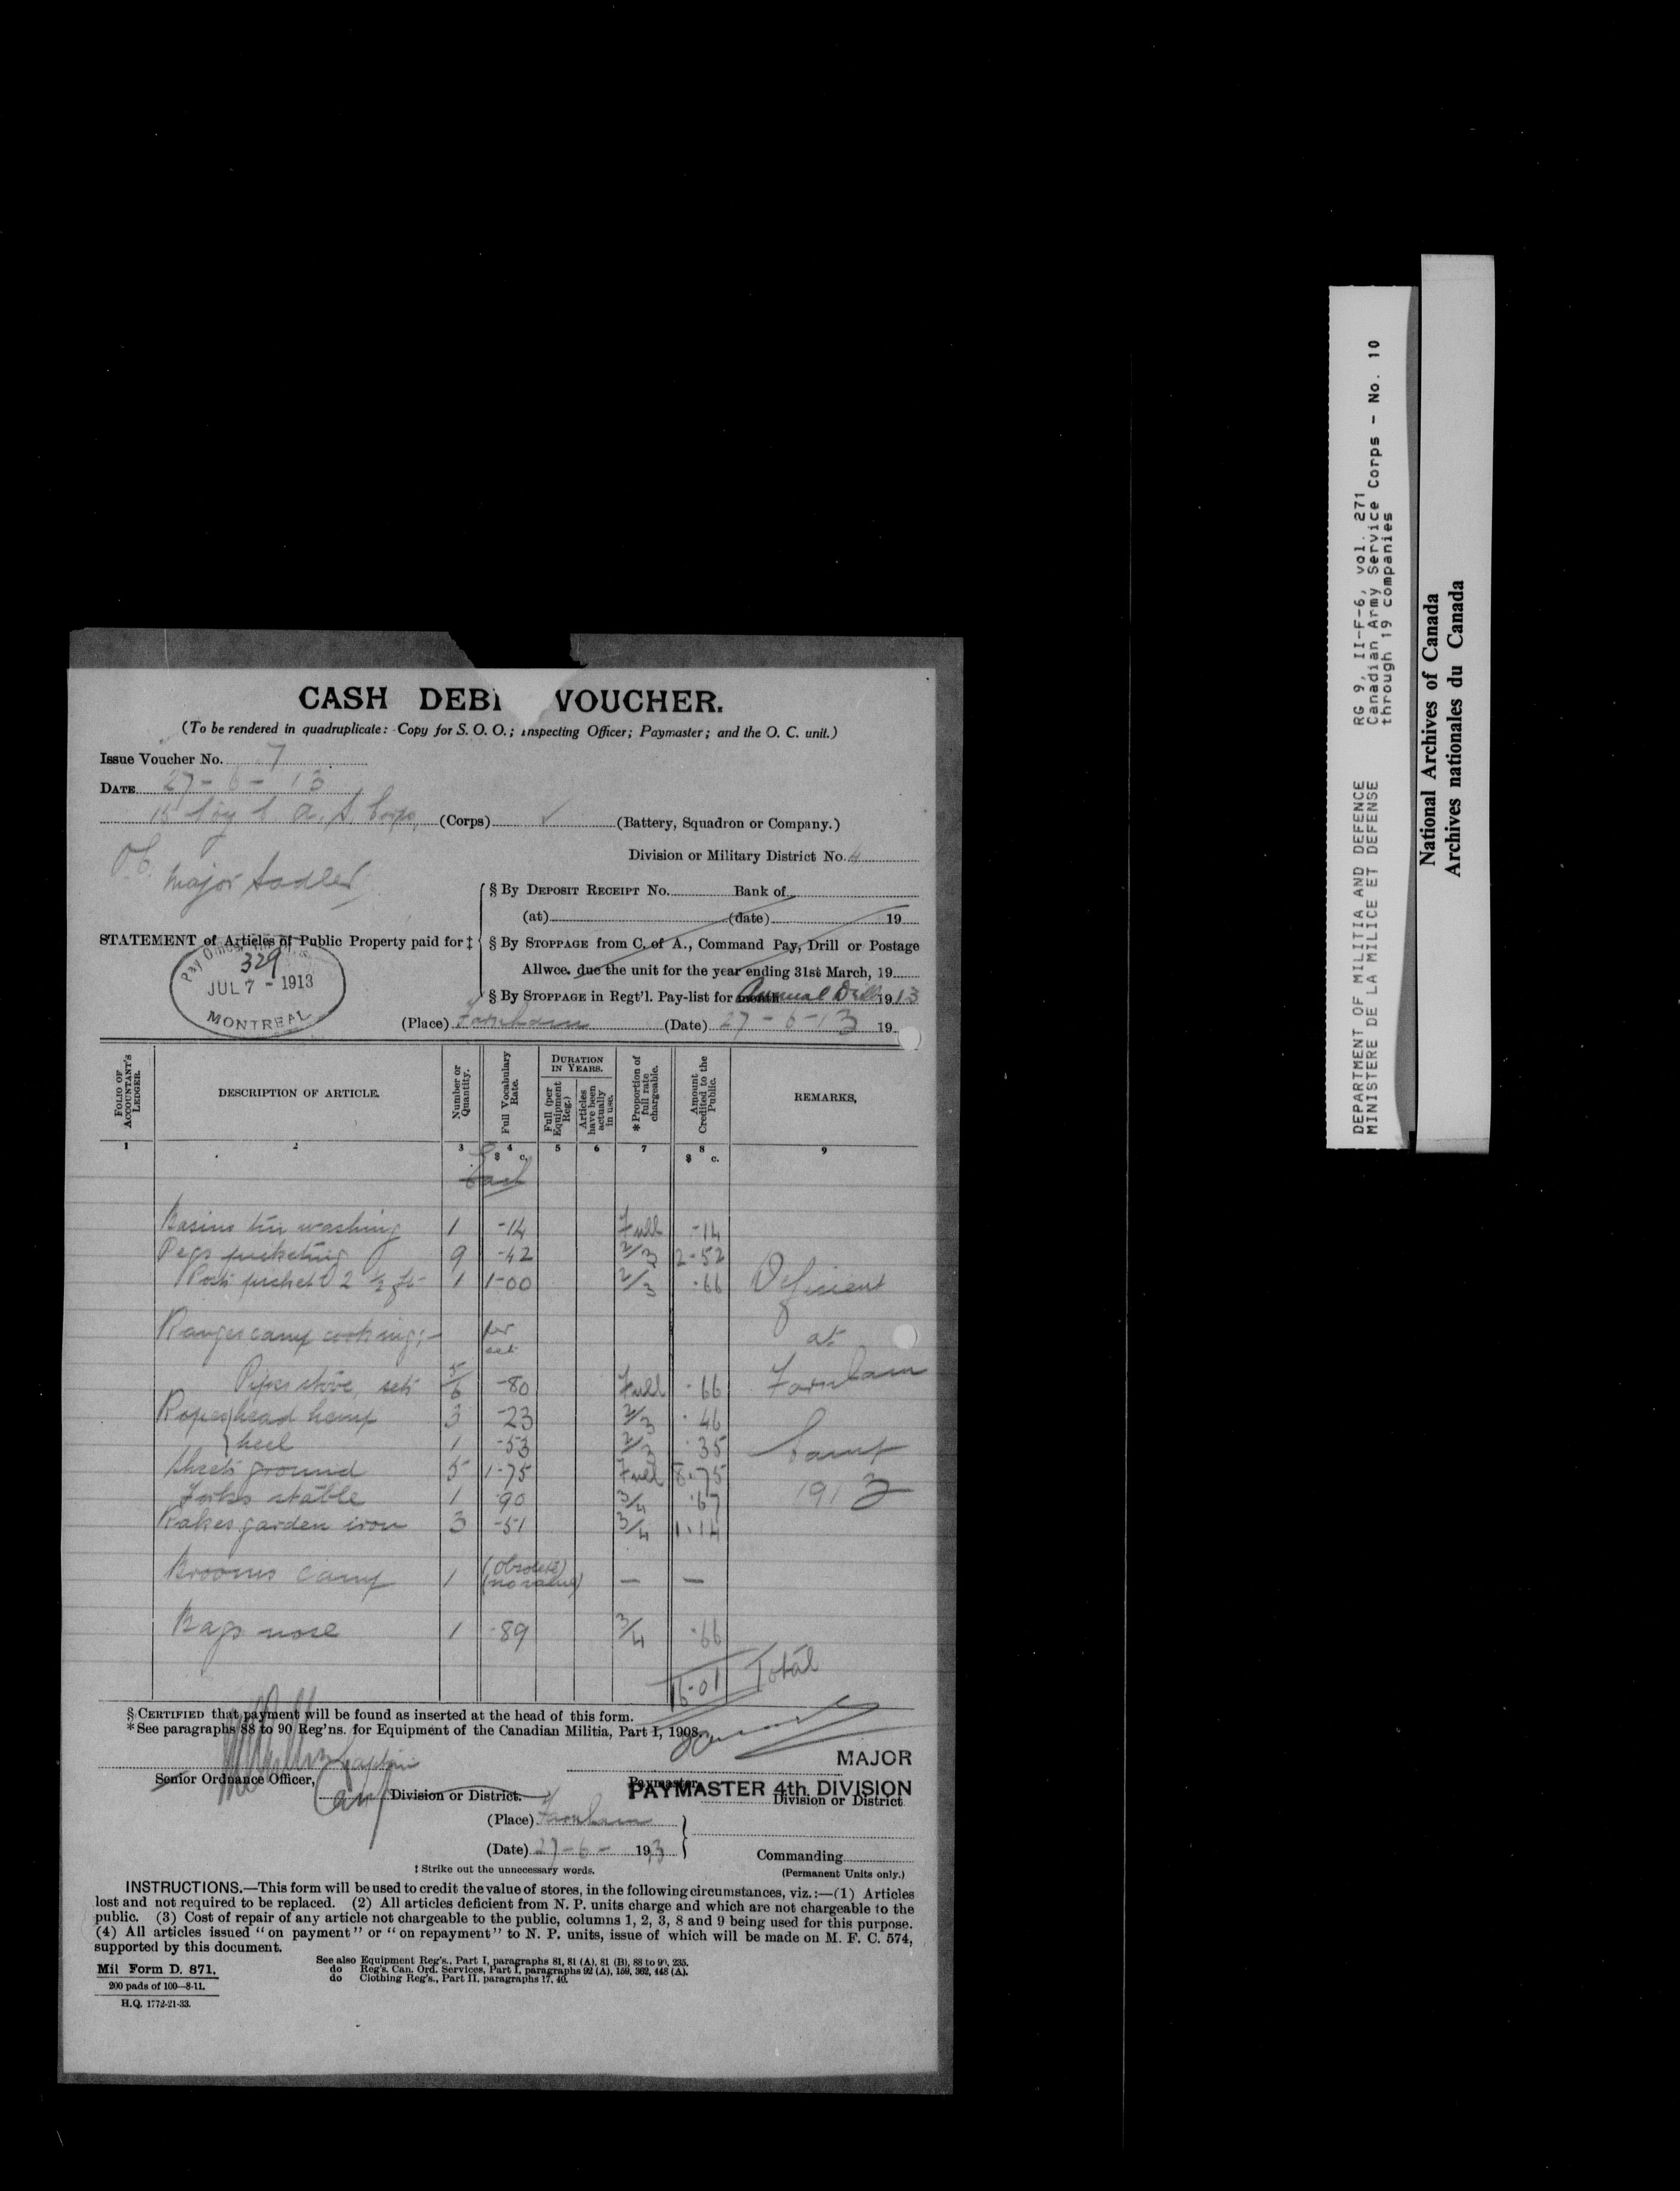 CASH DEBI VOUCHER.
(To be rendered in quadruplicate: Copy for S. O. O.; Inspecting Officer; Paymaster; and the O. C. unit.)
Issue Voucher No. 7
DATE 27-6-13
15 Coy C A. S. Corps, (Corps) ✓ (Battery, Squadron or Company.)
Division or Military District No. 4
O.C. Major Sadler
§ By DEPOSIT RECEIPT No. Bank of
(at) (date) 19
STATEMENT of Articles of Public Property paid for ‡
§ By STOPPAGE from C. of A., Command Pay, Drill or Postage
Allwce. due the unit for the year ending 31st March, 19
§ By STOPPAGE in Regt'l. Pay-list for month Annual Drill 1913
Pay Office
329
JUL 7 - 1913
MONTREAL
(Place) Farnham (Date) 27-6-13 19
FOLIO OF ACCOUNTANT'S LEDGER. DESCRIPTION OF ARTICLE. Number or Quantity. Full Vocabulary Rate. DURATION IN YEARS. Full (per Equipment Reg.) Articles have been actually in use. * Proportion of full rate chargeable. Amount Credited to the Public. REMARKS.
1 2 3 4 5 6 7 8 9
$ c. $ c.
Each
Basins tin washing 1 -14 Full -14
Pegs picketing 9 -42 2/3 2-52
Post picket 2 ½ ft 1 1-00 2/3 .66 Deficient
Ranges camp cooking:- per set at
Pipes stove, sets 5/6 -80 Full .66 Farnham
Ropes head hemp 3 -23 2/3 .46
heel 1 -53 2/3 .35 Camp
Sheets ground 5 1-75 Full 8.75
Forks stable 1 90 3/4 .67 1913
Rakes garden iron 3 -51 3/4 1.14
Brooms camp 1 (Obsolete) (no value) — —
Bags nose 1 -89 3/4 .66
16-01 Total
§ CERTIFIED that payment will be found as inserted at the head of this form.
* See paragraphs 88 to 90 Reg'ns. for Equipment of the Canadian Militia, Part I, 1908.
Captain
MAJOR
Senior Ordnance Officer, Paymaster,
PAYMASTER 4th DIVISION
Camp Division or District. Division or District
(Place) Farnham
(Date) 27-6- 1913 Commanding
‡ Strike out the unnecessary words. (Permanent Units only.)
INSTRUCTIONS.—This form will be used to credit the value of stores, in the following circumstances, viz.:—(1) Articles
lost and not required to be replaced. (2) All articles deficient from N. P. units charge and which are not chargeable to the
public. (3) Cost of repair of any article not chargeable to the public, columns 1, 2, 3, 8 and 9 being used for this purpose.
(4) All articles issued "on payment" or "on repayment" to N. P. units, issue of which will be made on M. F. C. 574,
supported by this document.
See also Equipment Reg's., Part I, paragraphs 81, 81 (A), 81 (B), 88 to 90, 235.
do Reg's. Can. Ord. Services, Part I, paragraphs 92 (A), 159, 362, 448 (A).
do Clothing Reg's., Part II, paragraphs 17, 40.
Mil Form D. 871.
200 pads of 100—8-11.
H.Q. 1772-21-33.
DEPARTMENT OF MILITIA AND DEFENCE
MINISTERE DE LA MILICE ET DEFENSE
RG 9, II-F-6, vol. 271
Canadian Army Service Corps - No. 10
through 19 companies
National Archives of Canada
Archives nationales du Canada